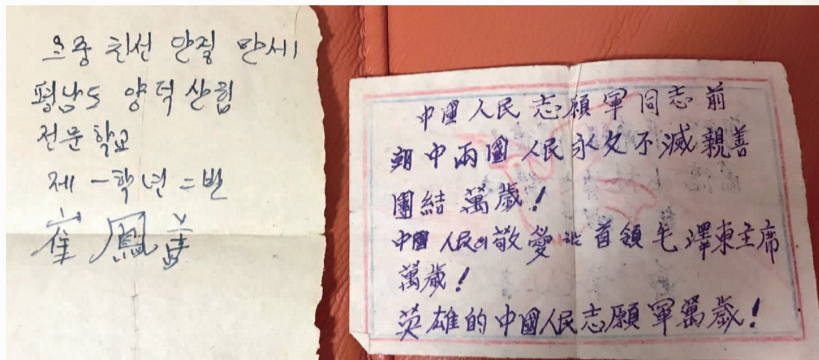 조중 친선 단결 만세!
평남도 양덕 산림
전문학교
제一학년二반
崔鳳
中國人民志願軍同志前
朝中兩國人民永久不滅親善
團結萬歲!
中國人民의敬愛하는首領毛澤東主席
萬歲!
英雄的中國人民志願軍萬歲!